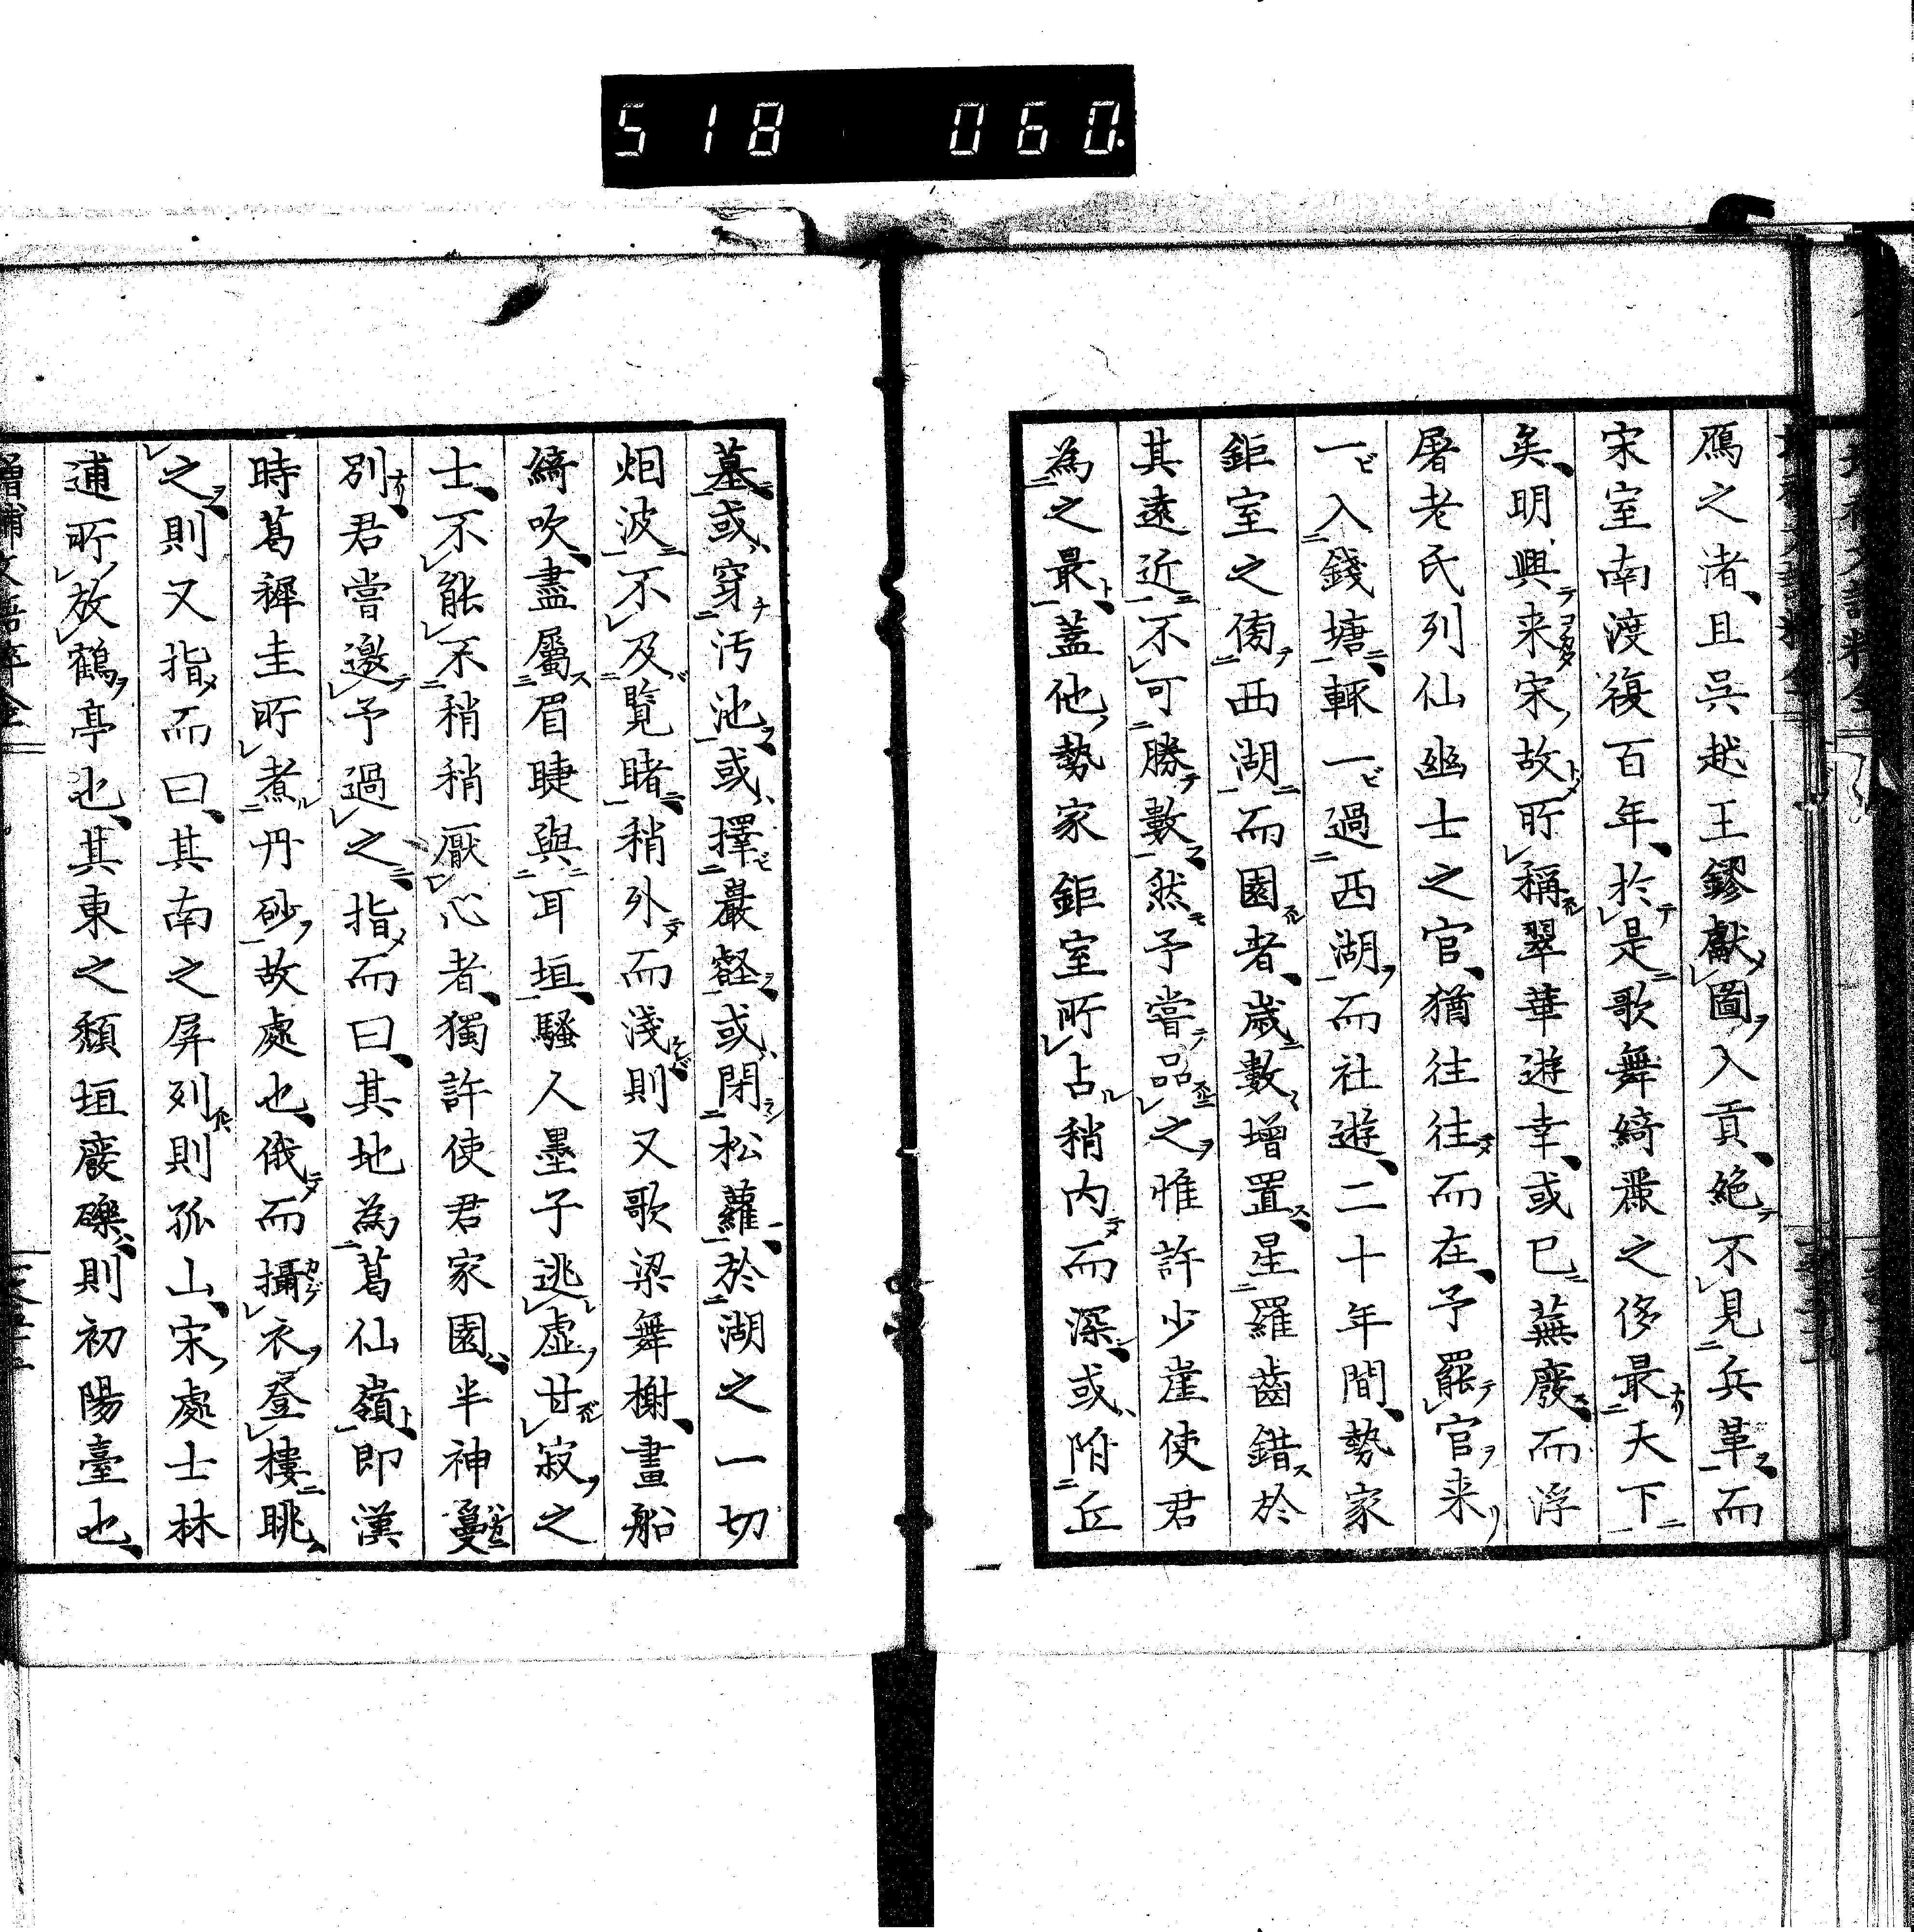 518 060
鴈之渚且吳越王鏐獻圖入貢絕不見兵革而
宋室南渡復百年於是歌舞綺麗之侈最天下
矣明興来宋故所稱翠華遊幸或已蕪廢而浮
屠老氏列仙幽士之宮猶往往而在予罷官来
一入錢塘輒一過西湖而社遊二十年間勢家
鉅室之傍西湖而園者歲數增置星羅齒錯於
其遠近不可勝數然予嘗品之惟許少崖使君
為之最蓋他勢家鉅室所占稍內而深或附丘
墓或穿汚池或擇巖壑或閉松蘿於湖之一切
烟波不及覧睹稍外而淺則又歌梁舞榭畫船
綺吹盡屬眉睫與耳垣騷人墨子逃虛甘寂之
士不能不稍稍厭心者獨許使君家園半神
別君嘗邀予過之指而曰其地為葛仙嶺即漢
時葛稚圭所煮丹砂故處也俄而攝衣登樓眺
之則又指而曰其南之屏列則孤山宋處士林
逋所放鶴亭也其東之頹垣廢礫則初陽臺也